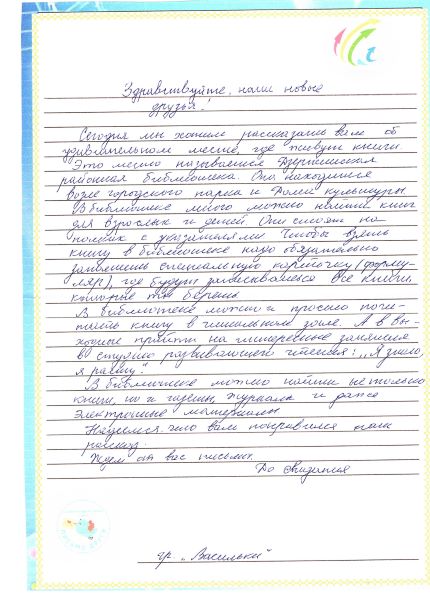 Здравствуйте, наши новые
друзья!
Сегодня мы хотим рассказать вам об
удивительном месте, где живут книги.
Это место называется Дзержинская
районная библиотека. Она находится
возле городского парка и Дома культуры.
В библиотеке много можно найти книг
для взрослых и детей. Они стоят на
полках с указателями. Чтобы взять
книгу в библиотеке надо обязательно
заполнить специальную карточку (форму-
ляр), где будут записываться все книги,
которые ты берёшь.
В библиотеке можно и просто почи-
тать книгу в читальном зале. А в вы-
ходные прийти на интересные занятия
в студию развивающего чтения: „Я знаю,
я расту."
В библиотеке можно найти не только
книги, но и газеты, журналы и даже
электронные материалы.
Надеемся что вам понравился наш
рассказ.
Ждём от вас письма.
До свидания
гр. „Васильки"